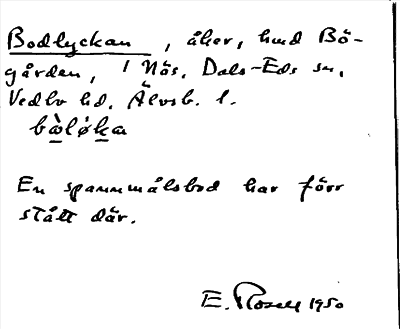 Bodlyckan, åker, hmd Bö-
gården, 1 Nös, Dals-Eds sn,
Vedbo hd, Älvsb. l.
bòløka
En spannmålsbod har förr
stått där.
E. Rosell 1950